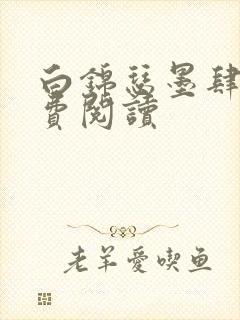 白錦瑟墨肆
費閱讀
老羊愛喫鱼